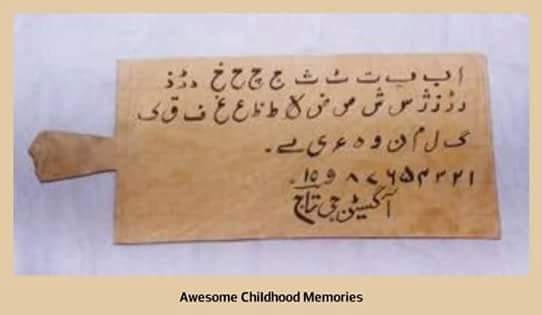 ا ب پ ت ٹ ث ج چ ح خ د ڈ ذ
ر ڑ ز ژ س ش ص ض ط ظ ع غ ف ق ک
گ ل م ن و ہ ء ی ے ۔
۱ ۲ ۳ ۴ ۵ ۶ ۷ ۸ ۹ ۱۵ ۔
جی تاج
Awesome Childhood Memories